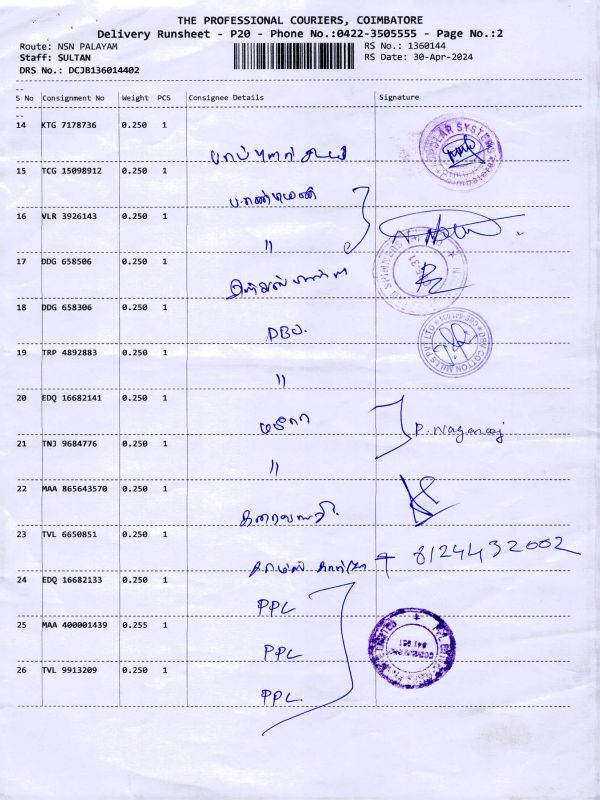 THE PROFESSIONAL COURIERS, COIMBATORE
Delivery Runsheet - P20 - Phone No.:0422-3505555 - Page No.:2
Route: NSN PALAYAM RS No.: 1360144
Staff: SULTAN RS Date: 30-Apr-2024
DRS No.: DCJB136014402
--
S No Consignment No Weight PCS Consignee Details Signature
--
14 KTG 7178736 0.250 1
15 TCG 15098912 0.250 1
16 VLR 3926143 0.250 1
"
17 DDG 658506 0.250 1
18 DDG 658306 0.250 1
19 TRP 4892883 0.250 1
"
20 EDQ 16682141 0.250 1
P. Nagaraj
21 TNJ 9684776 0.250 1
"
22 MAA 865643570 0.250 1
23 TVL 6650851 0.250 1
8124432002
24 EDQ 16682133 0.250 1
PPL
25 MAA 400001439 0.255 1
PPL
26 TVL 9913209 0.250 1
PPL.